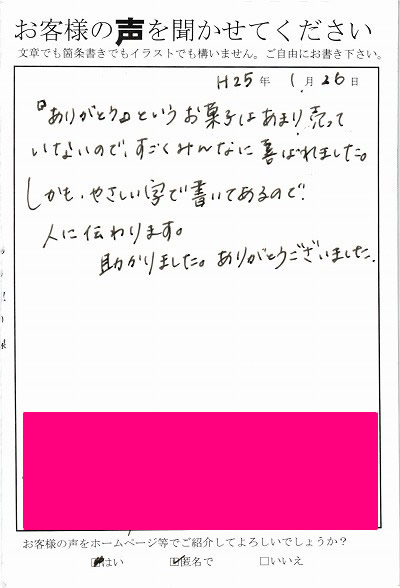 お客様の声を聞かせてください
文章でも箇条書きでもイラストでも構いません。ご自由にお書き下さい。
H25年 1月26日
『ありがとう』というお菓子はあまり売って
いないので、すごくみんなに喜ばれました。
しかも、やさしい字で書いてあるので
人に伝わります。
助かりました。ありがとうございました。
お客様の声をホームページ等でご紹介してよろしいでしょうか？
☑はい ☑匿名で □いいえ